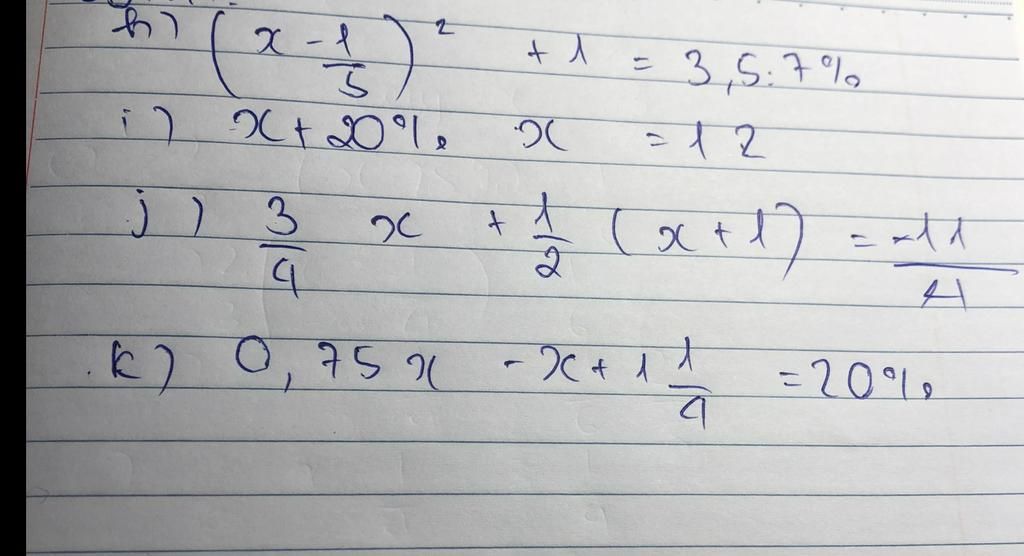 h) (x - 1/5)² + 1 = 3,5:7%
i) x + 20% x = 12
j) 3/4 x + 1/2 (x + 1) = -11/4
k) 0,75x - x + 1 1/4 = 20%